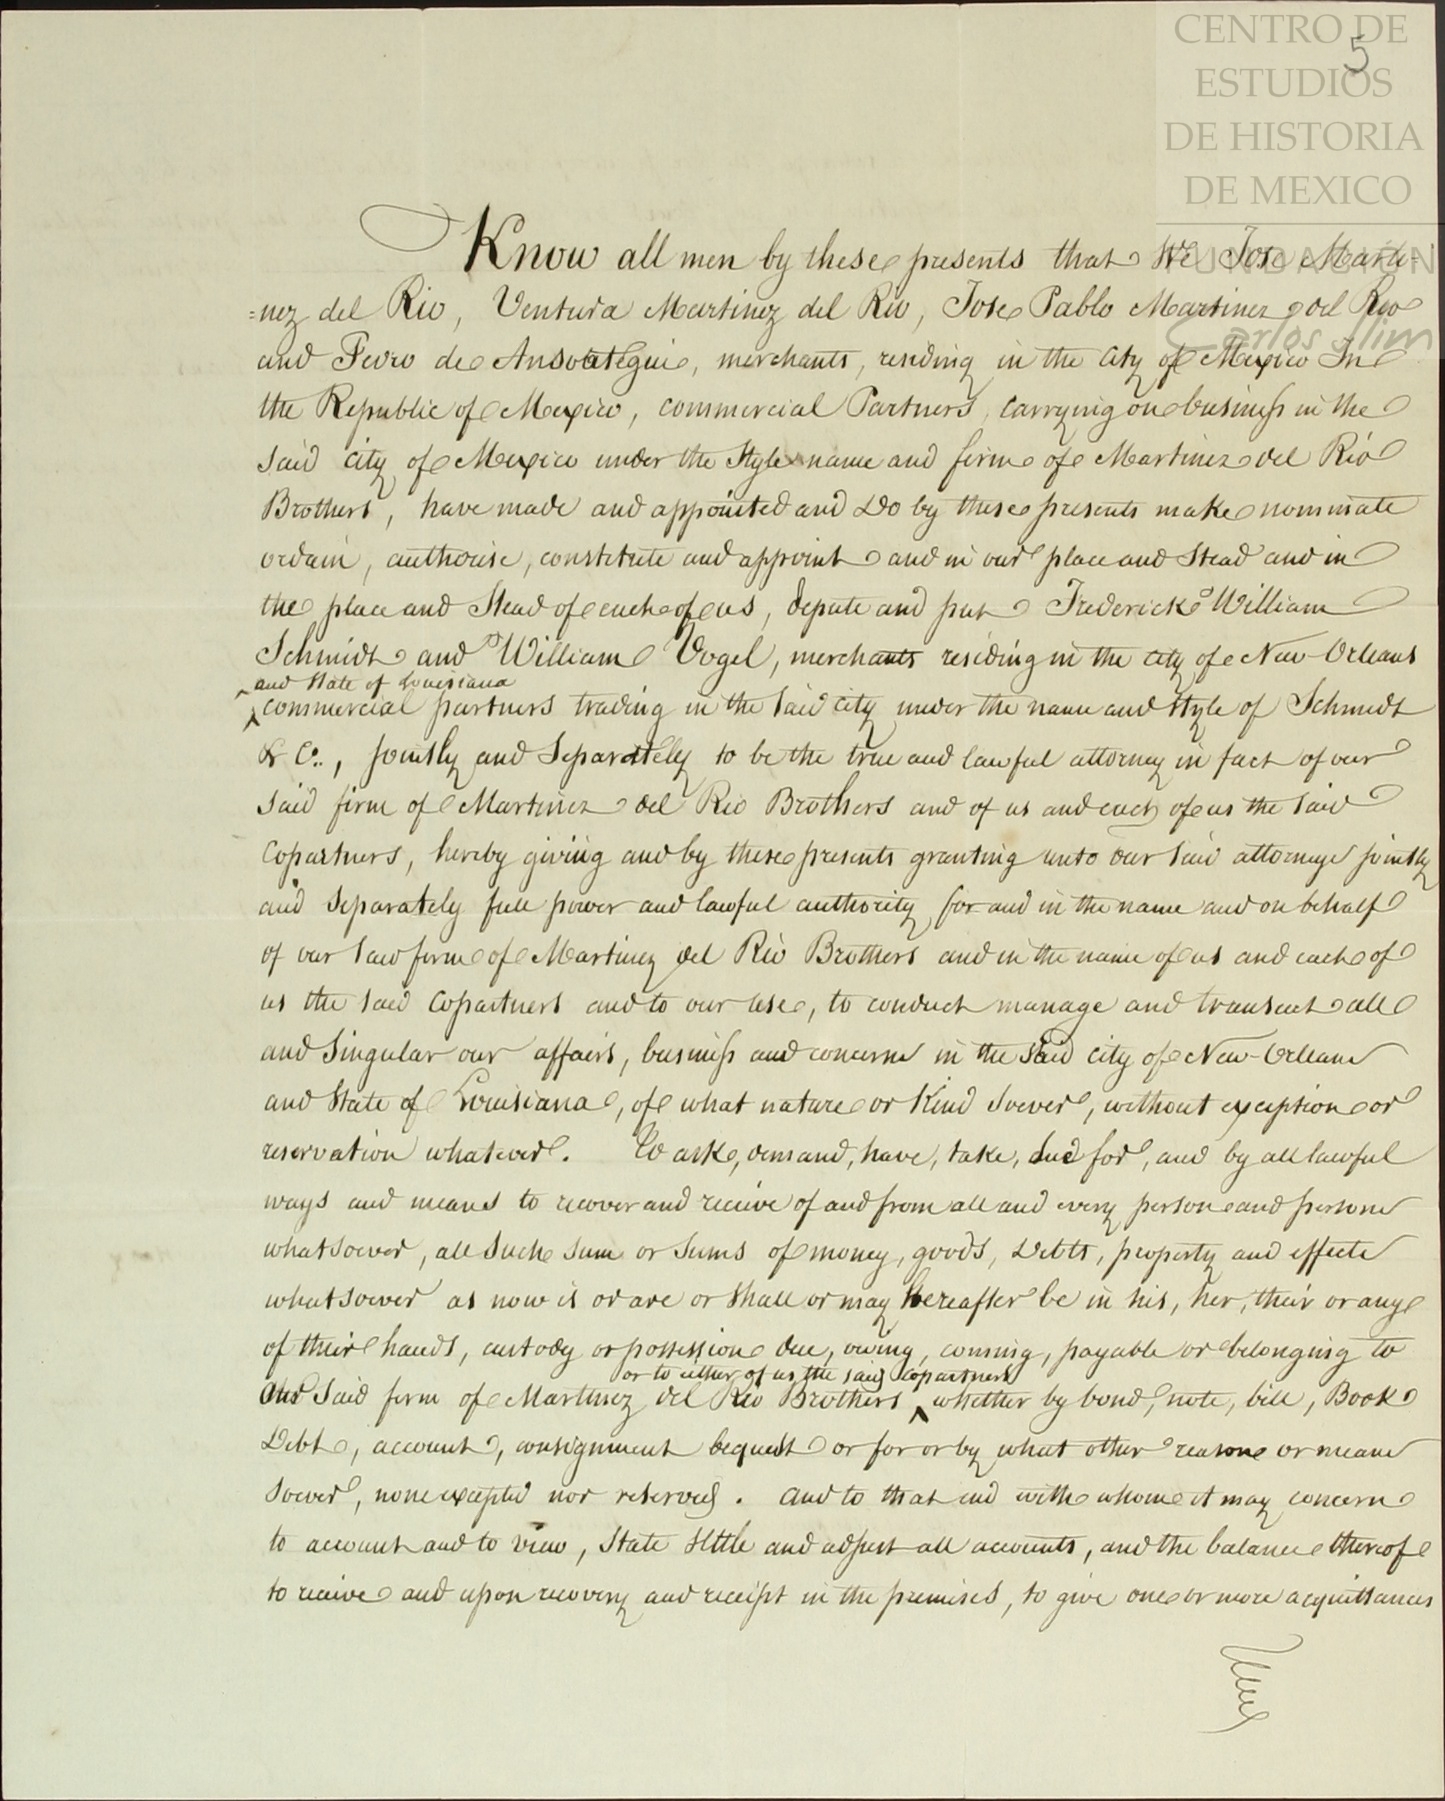 CENTRO DE
ESTUDIOS
DE HISTORIA
DE MEXICO
FUNDACIÓN
Carlos Slim
5
Know all men by these presents that We Jose Marti-
=nez del Rio, Ventura Martinez del Rio, Jose Pablo Martinez del Rio
and Pedro de Ansoategui, merchants, residing in the City of Mexico In
the Republic of Mexico, commercial Partners, carrying on business in the
said city of Mexico under the Style name and firm of Martinez del Rió
Brothers, have made and appointed and Do by these presents make nominate
ordain, authorise, constitute and appoint and in our place and Stead and in
the place and Stead of each of us, depute and put Frederick William
Schmidt and William Vogel, merchants residing in the city of New Orleans
and State of Louisiana
commercial partners trading in the said city under the name and style of Schmidt
& Co., jointly and Separately to be the true and lawful attorney in fact of our
said firm of Martinez del Rio Brothers and of us and each of us the said
Copartners, hereby giving and by these presents granting unto our said attorneys jointly
and separately full power and lawful authority for and in the name and on behalf
of our said firm of Martinez del Rio Brothers and in the name of us and each of
us the said Copartners and to our use, to conduct manage and transact all
and Singular our affairs, business and concerns in the said city of New-Orleans
and State of Louisiana, of what nature or Kind soever, without exception or
reservation whatever. To ask, demand, have, take, sue for, and by all lawful
ways and means to recover and receive of and from all and every person and persons
whatsoever, all such sum or sums of money, goods, Debts, property and effects
whatsoever as now is or are or shall or may hereafter be in his, her, their or any
of their hands, custody or possession due, owing, coming, payable or belonging to
or to either of us the said copartners
our said firm of Martinez del Rio Brothers whether by bond, note, bill, Book
Debt, account, consignment bequest or for or by what other reason or means
soever, none excepted nor reserved. And to that end with whom it may concern
to account and to view, State settle and adjust all accounts, and the balance thereof
to receive and upon recovery and receipt in the premises, to give one or more acquittances